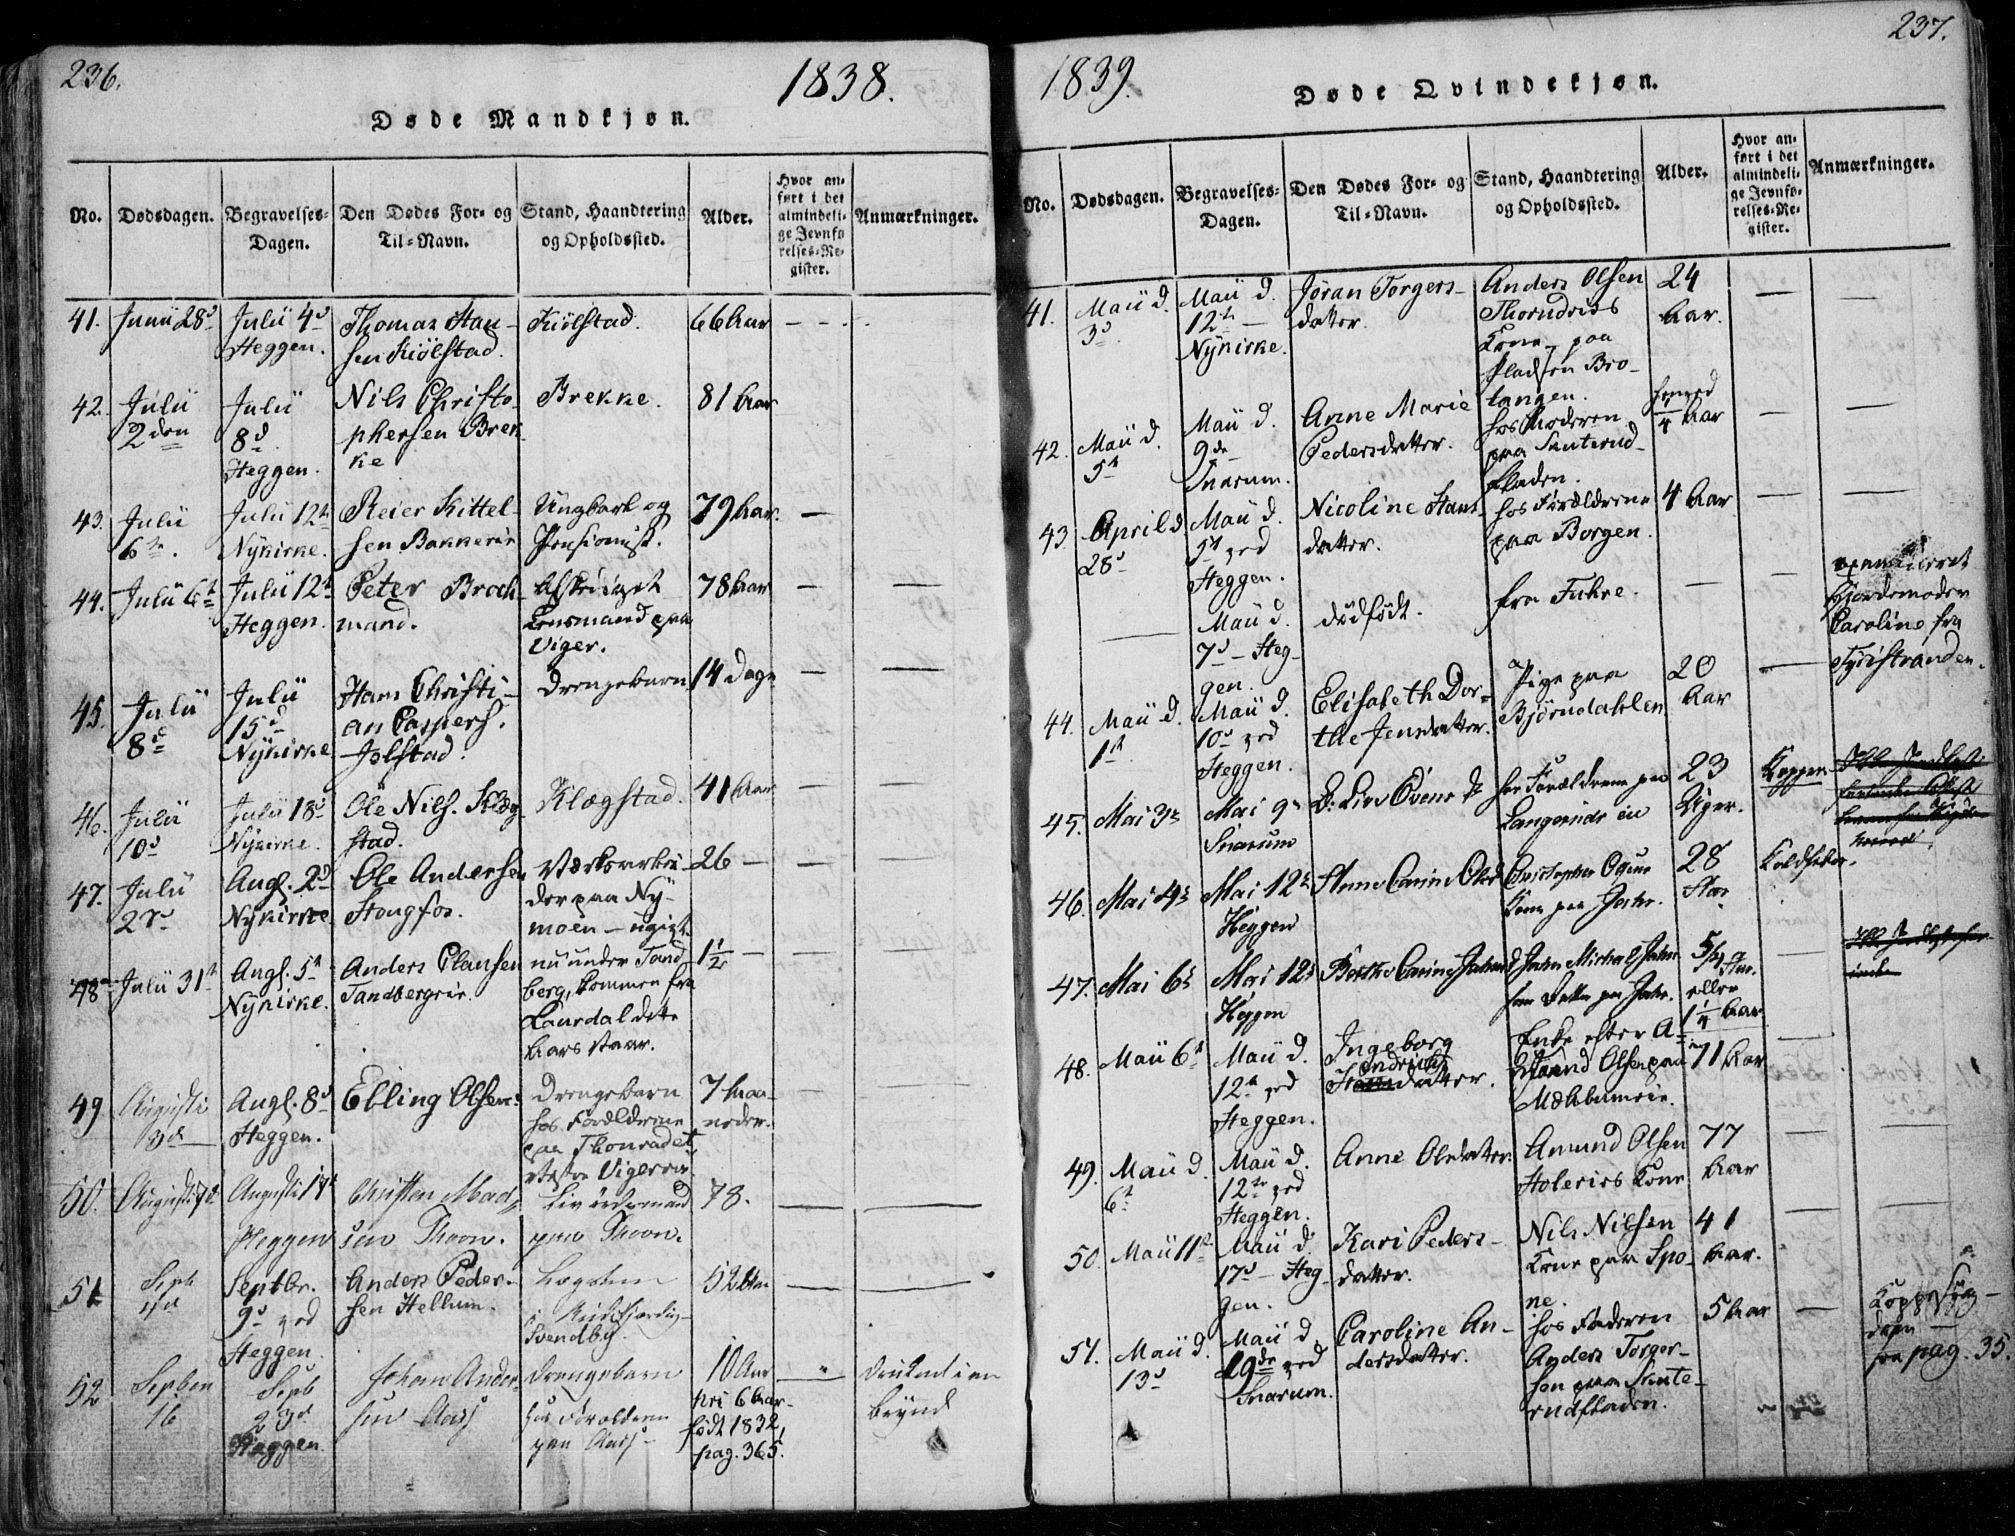 236.
1838.
Døde Mandkjøn.
No. Dødsdagen. Begravelses-Dagen. Den Dødes For- og Til-Navn. Stand, Haandtering og Opholdssted. Alder. Hvor anført i det almindelige Jevnførelses-Register. Anmærkninger.
41. Junii 28d
Julii 4d
Heggen.
Thomas Han-
sen Kiölstad.
Kiölstad.
66 Aar
42. Julii
2den
Julii
8d
Heggen.
Nils Christo-
phersen Brek-
ke
Brekke.
81 Aar
43. Julii
6te.
Julii 12te
Nykirke.
Reier Kittel-
sen Bakkerie
Ungkarl og
Pensionist.
79 Aar.
44. Julii 6t
Julii 12te
Heggen.
Peter Broch-
mand.
Afskediget
Lensmand paa
Viger.
78 Aar
45. Julii
8d
Julii
15d
Nykirke
Hans Christi-
an Caspers.
Jolstad.
Drengebarn
14 Dage
46. Julii
10d
Julii 18d
Nykirke.
Ole Nils. Klæg-
stad.
Klægstad.
41 Aar
47. Julii
27d
Augs. 2d
Nykirke
Ole Andersen
Hougfos.
Værksarbei-
der paa Ny-
moen - ugivt.
26
48 Julii 31t
Augs. 5t
Nykirke.
Anders Clausen
Tandbergeie.
nu under Tand-
berg, kommen fra
Laurdal dette
Aars Vaar.
1 1/2
49 Augusti
3d
Augs. 8d
Heggen.
Ebling Olsen:
Drengebarn
hos Forældrene
paa Thonradet
Vestre Vigerra
7 Maa-
neder.
50. Augusti 7d
Augusti 17
Heggen
Christen Mad-
sen Thoon.
Livördsmand
paa Thoon.
78.
51 Septb
4d
Septbr.
9d ved
Heggen.
Anders Peder-
sen Hellum.
Svendby.
52 Aar
52 Septbr
16
Septb
23d
Heggen.
Johan Ander-
sen Aass
Drengebarn
hos Forældrene
paa Aass
10 Aar
kri 6 Aar
født 1832,
pag. 365.
Druknet i en
Brynd
237.
1839.
Døde Qvindekjøn.
No. Dødsdagen. Begravelses-Dagen. Den Dødes For- og Til-Navn. Stand, Haandtering og Opholdssted. Alder. Hvor anført i det almindelige Jevnførelses-Register. Anmærkninger.
41. Maii d.
3d
Maii d.
12te
Nykirke.
Jöran Torgers-
datter.
Anders Olsen
Thorudries
Kone, paa
Pladsen Bro-
tangen.
24
Aar.
42. Maii d.
5te
Maii d.
9de
Snarum.
Anne Marie
Pedersdatter.
hos Moderen
paa Skuterud-
fladen.
1/4 Aar
43. April d.
28d
Maii d.
5te ved
Heggen.
Nicoline Hans-
datter.
hos Forældrene
paa Borgen.
4 Aar
Maii d.
7d - Heg-
gen.
dødfødt.
fra Fuhre.
examineret
Gjordemoder
Caroline fra
Tyristranden.
44. Maii d.
1te
Maii d.
10d ved
Heggen.
Elisabeth Dor-
the Jensdatter.
Pige paa
Bjørndahlen
20
Aar
45. Mai 3de
Mai 9de
Snarum
hos Forældrene paa
23
Uger.
Kopper
46. Mai 4de
Mai 12te
Heggen
Anne Carine Olsd
Kone paa Jahr.
28
Aar
Koldfeber.
47. Mai 6te
Mai 12te
Heggen
Berthe Carine Johansd
paa Jahr.
eller
1 1/4 Aar
48. Maii 6te
Maii d.
12te ved
Heggen.
Ingeborg
Endrichs
datter.
Enke efter A-
mund Olsen paa
71 Aar
49. Maii d.
6te
Maii d.
12te ved
Heggen.
Anne Olsdatter.
Amund Olsen
Holeries Kone
77
Aar
50. Maii 11te
Maii d.
17d - Heg-
gen.
Kari Peders-
datter.
Nils Nilsen
Kone paa Spo-
ne.
41
Aar.
51. Maii d.
13d
Maii d.
19de ved
Snarum.
Caroline An-
dersdatter.
hos Faderen
Anders Torger-
sen paa Skute-
rudfladen.
5 Aar
Koppesyg-
dom
pag. 35.